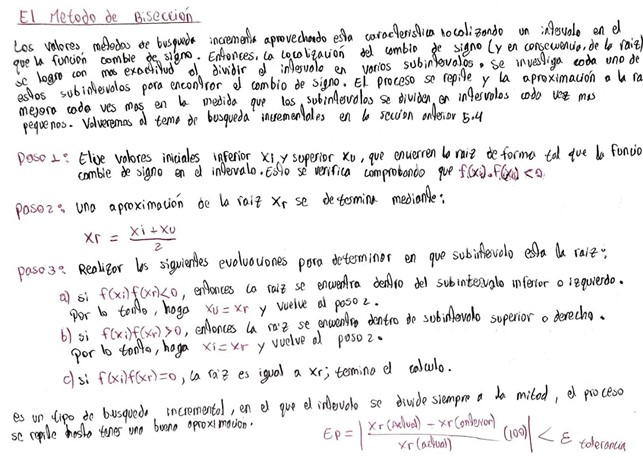 El Metodo de Bisección
Los valores metodos de busqueda incremental aprovechando esta caracteristica localizando un intervalo en el
que la función cambie de signo. Entonces, la localización del cambio de signo (y en consecuencia, de la raiz)
se logra con mas exactitud al dividir el intervalo en varios subintervalos. Se investiga cada uno de
estos subintervalos para encontrar el cambio de signo. El proceso se repite y la aproximación a la ra
mejora cada ves mas en la medida que los subintervalos se dividen en intervalos cada vez mas
pequeños. Volveremos al tema de busqueda incrementales en la seccion anterior 5.4
Paso 1: Elije valores iniciales inferior Xi, y superior Xu, que encierren la raiz de forma tal que la funcio
cambie de signo en el intervalo. Esto se verifica comprobando que f(xi).f(xu) < 0
paso 2: una aproximación de la raiz Xr se determina mediante:
Xr = Xi + Xu / 2
paso 3: Realizar los siguientes evaluaciones para determinar en que subintervalo esta la raiz:
a) si f(xi)f(xr)<0, entonces la raiz se encuentra dentro del subintervalo inferior o izquierdo.
Por lo tanto, haga Xu = Xr y vuelve al paso 2.
b) si f(xi)f(xr) > 0, entonces la raiz se encuentra dentro de subintervalo superior o derecho.
Por lo tanto, haga Xi = Xr y vuelve al paso 2.
c) si f(xi)f(xr) = 0, la raiz es igual a Xr; termina el calculo.
es un tipo de busqueda incremental, en el que el intervalo se divide siempre a la mitad, el proceso
se repite hasta tener una buena aproximacion.
Ep = | Xr (actual) - Xr (anterior) / Xr (actual) (100) | < ε tolerancia